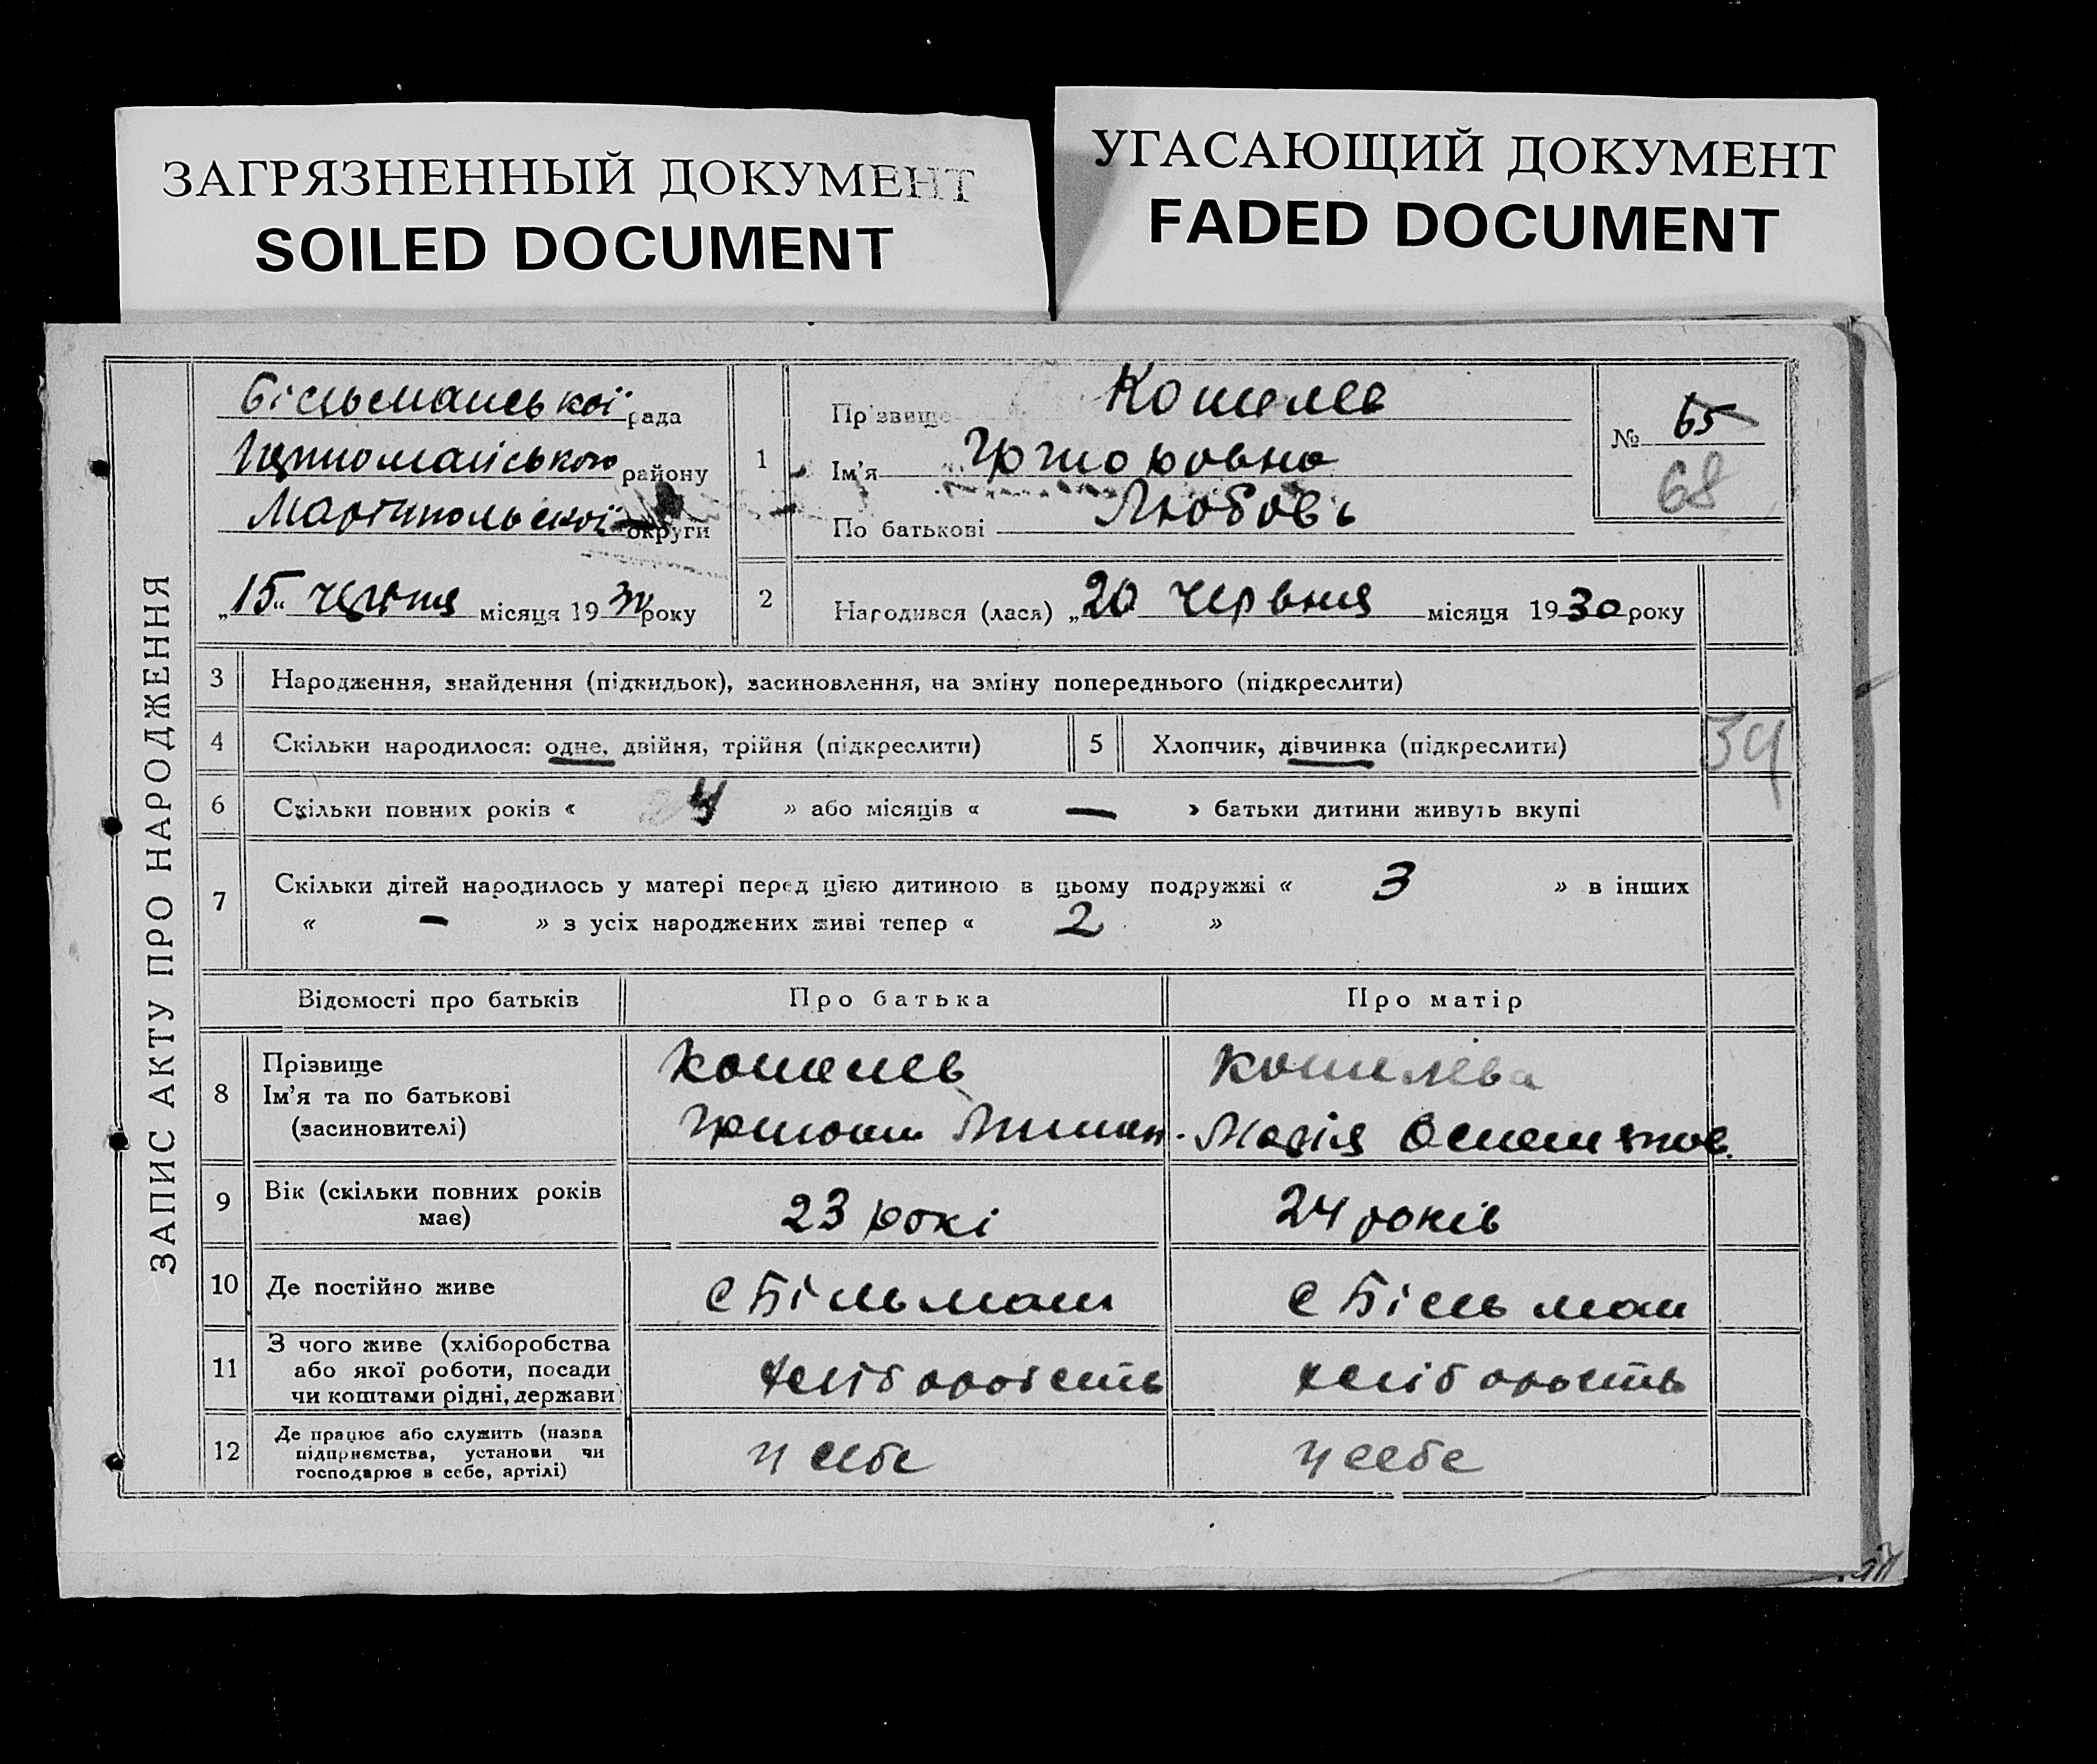 ЗАГРЯЗНЕННЫЙ ДОКУМЕНТ
SOILED DOCUMENT
УГАСАЮЩИЙ ДОКУМЕНТ
FADED DOCUMENT
ЗАПИС АКТУ ПРО НАРОДЖЕННЯ
Більманської рада
району
округи
„15“ місяця 1930 року
1
Прізвище Кошелев
Ім'я Григоровна
По батькові Любовь
№ 65
68
2 Народився (лася) „20 червня місяця 1930 року
3 Народження, знайдення (підкидьок), засиновлення, на зміну попереднього (підкреслити)
4 Скільки народилося: одне, двійня, трійня (підкреслити)
5 Хлопчик, дівчинка (підкреслити)
34
6 Скільки повних років « 4 » або місяців « — » батьки дитини живуть вкупі
7 Скільки дітей народилось у матері перед цією дитиною в цьому подружжі « 3 » в інших
« – » з усіх народжених живі тепер « 2 »
Відомості про батьків Про батька Про матір
8 Прізвище
Ім'я та по батькові
(засиновителі)
Кошелев
Кошелева
Марія
9 Вік (скільки повних років
має)
23 рокі
24 років
10 Де постійно живе с Більман с Більман
11 З чого живе (хліборобства
або якої роботи, посади
чи коштами рідні, держави)
12 Де працює або служить (назва
підприємства, установи чи
господарює в себе, артілі)
у себе
у себе